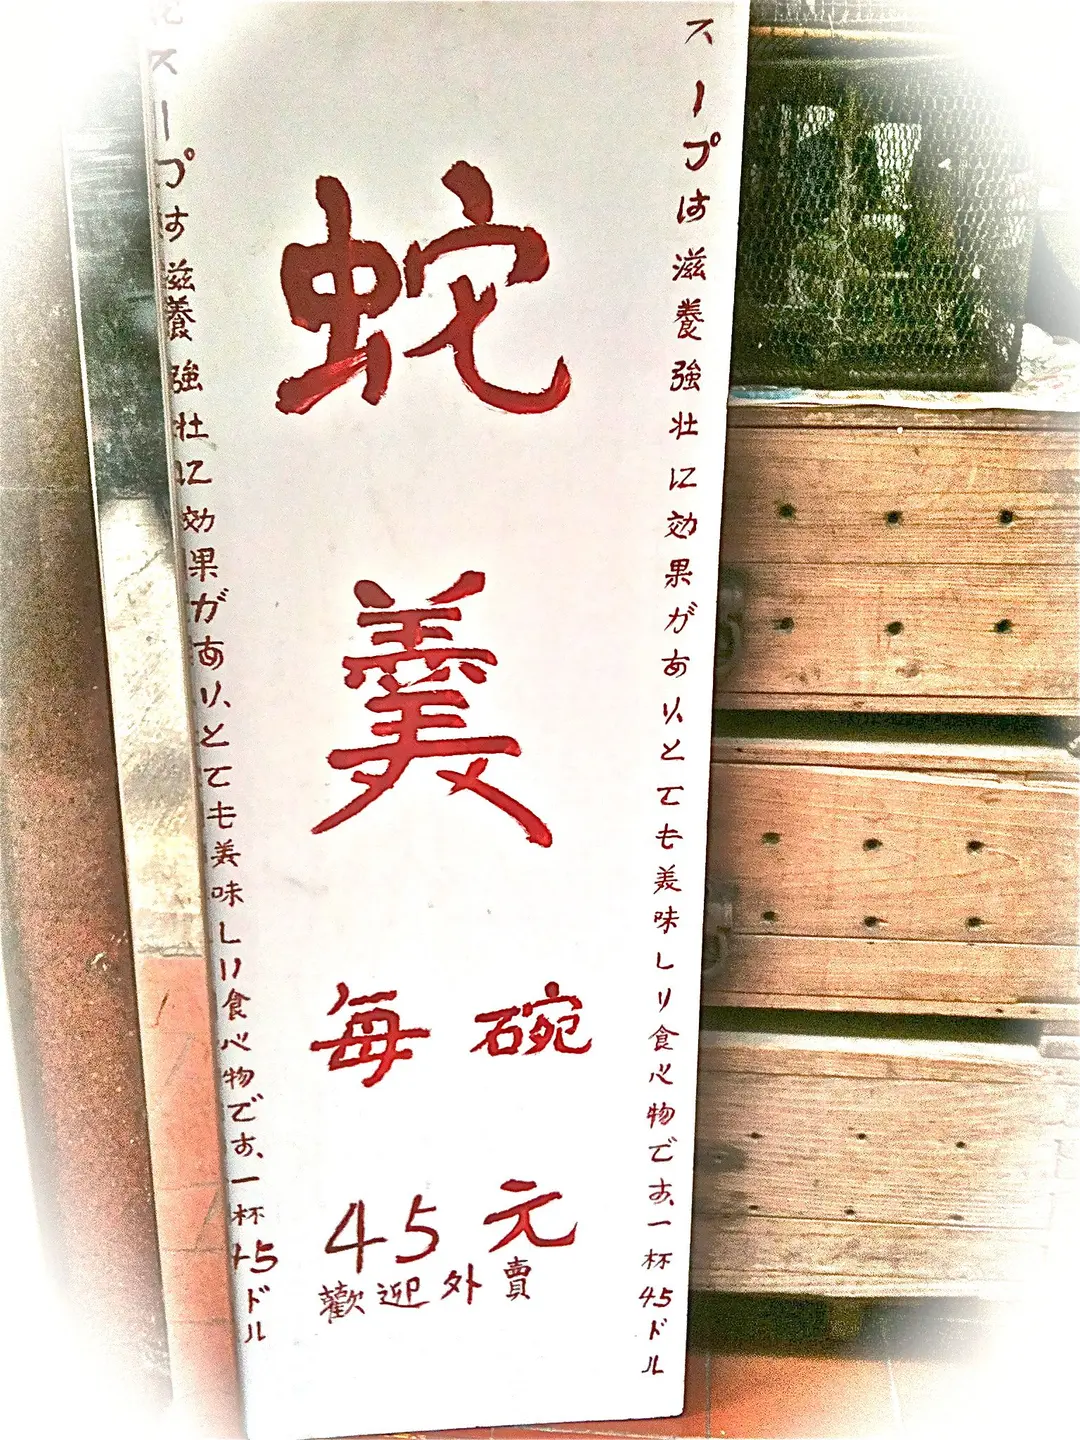 スープは滋養強壮に効果があり、とても美味しい食べ物です、一杯45ドル
蛇羹
每碗
45元
歡迎外賣
スープは滋養強壮に効果があり、とても美味しい食べ物です、一杯45ドル